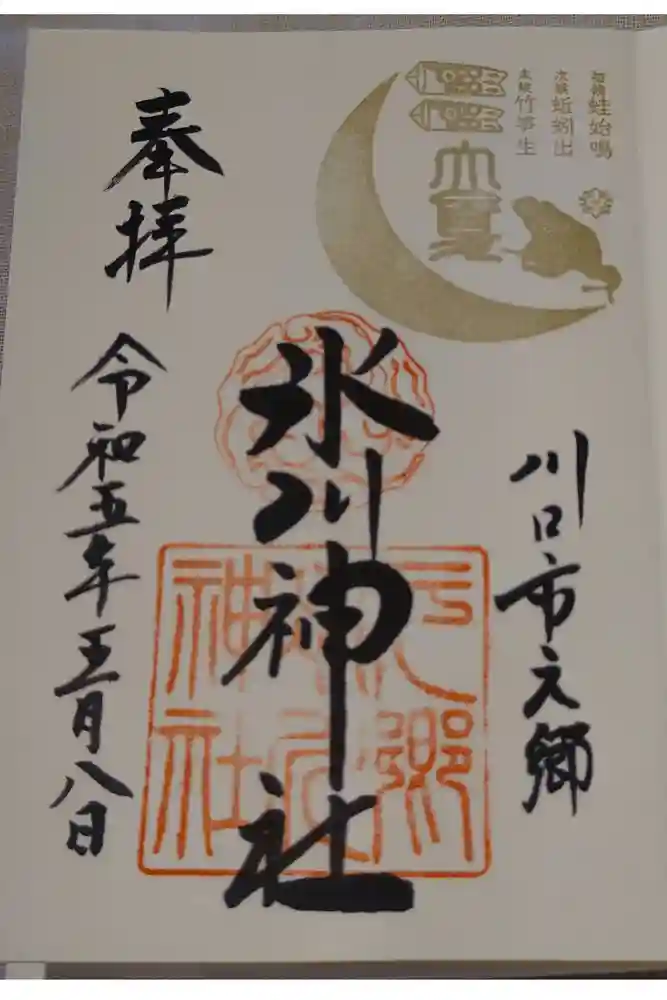 初候 蛙始鳴
次候 蚯蚓出
末候 竹笋生
立夏
川口市元郷
氷川神社
元郷
氷川
神社
奉拝
令和五年五月八日